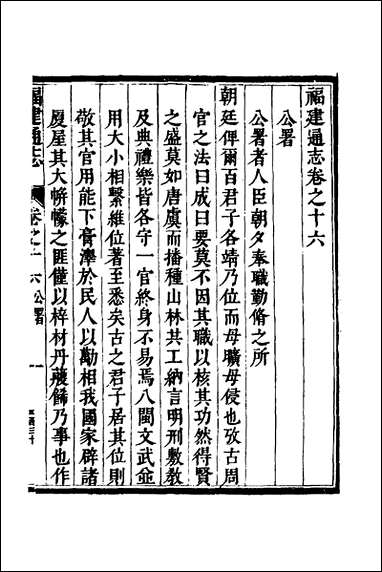 福建通志卷之十六
公署
公署者人臣朝夕奉職勤脩之所
朝廷俾爾百君子各靖乃位而毋曠毋侵也攷古周
官之法曰成曰要莫不因其職以核其功然得賢
之盛莫如唐虞而播種山林其工納言明刑敷教
及典禮樂皆各守一官終身不易焉八閩文武僉
用大小相繫維位著至悉矣古之君子居其位則
敬其官用能下膏澤於民人以勵相我國家辟諸
廈屋其大帡幪之匪僅以梓材丹雘餙乃事也作
福建通志
卷之十六 公署
一